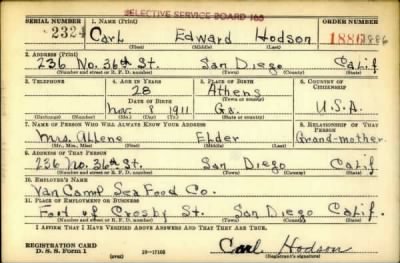 SELECTIVE SERVICE BOARD 165
SERIAL NUMBER 1. NAME (Print) ORDER NUMBER
2324 Carl Edward Hodson
(First) (Middle) (Last)
2. ADDRESS (Print)
236 No. 36th St. San Diego Calif
(Number and street or R. F. D. number) (Town) (County) (State)
3. TELEPHONE 4. AGE IN YEARS 5. PLACE OF BIRTH 6. COUNTRY OF CITIZENSHIP
28 Athens
DATE OF BIRTH (Town or county)
Nov. 8 1911 Ga. U.S.A.
(Exchange) (Number) (Mo.) (Day) (Yr.) (State or country)
7. NAME OF PERSON WHO WILL ALWAYS KNOW YOUR ADDRESS 8. RELATIONSHIP OF THAT PERSON
Mrs. Elder Grand-mother
(Mr., Mrs., Miss) (First) (Middle) (Last)
9. ADDRESS OF THAT PERSON
236 No. 36th St. San Diego Calif
(Number and street or R. F. D. number) (Town) (County) (State)
10. EMPLOYER'S NAME
Van Camp Sea Food Co.
11. PLACE OF EMPLOYMENT OR BUSINESS
Foot of Crosby St. San Diego Calif
(Number and street or R. F. D. number) (Town) (County) (State)
I AFFIRM THAT I HAVE VERIFIED ABOVE ANSWERS AND THAT THEY ARE TRUE.
REGISTRATION CARD
D. S. S. Form 1
Carl Hodson
(Registrant's signature)